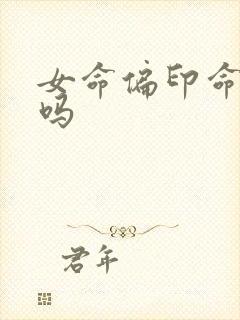 女命偏印命
吗
君年